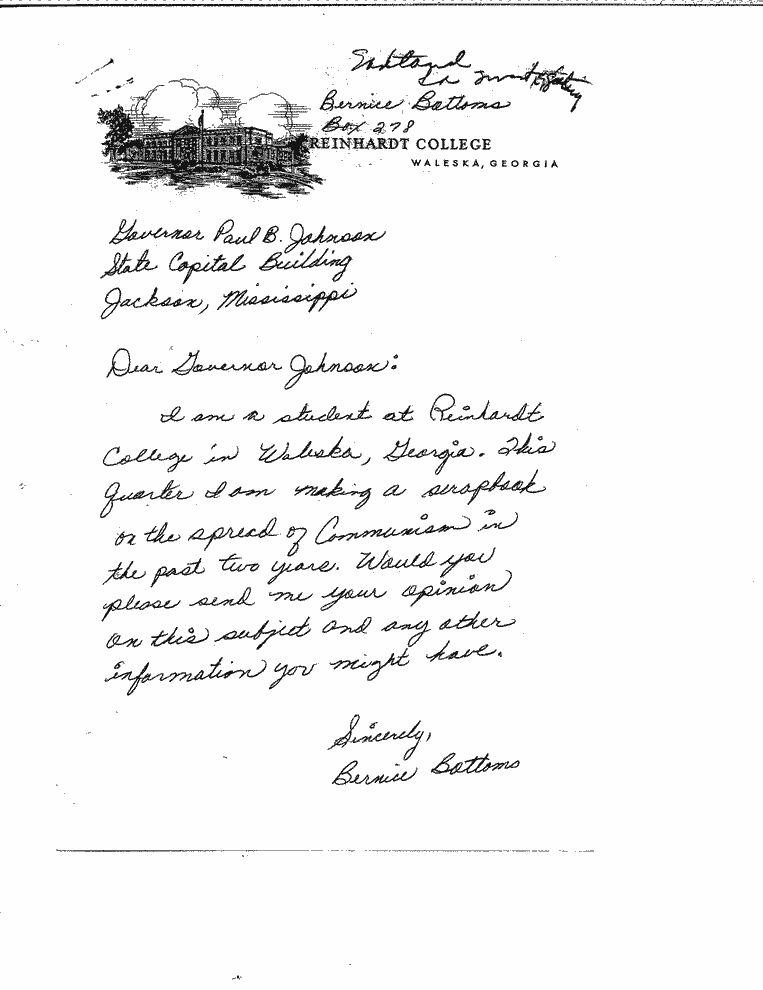 Bernice Bottoms
Box 278
REINHARDT COLLEGE
WALESKA, GEORGIA
Governor Paul B. Johnson
State Capital Building
Jackson, Mississippi
Dear Governor Johnson:
I am a student at Reinhardt
College in Waleska, Georgia. This
quarter I am making a scrapbook
on the spread of Communism in
the past two years. Would you
please send me your opinion
on this subject and any other
information you might have.
Sincerely,
Bernice Bottoms